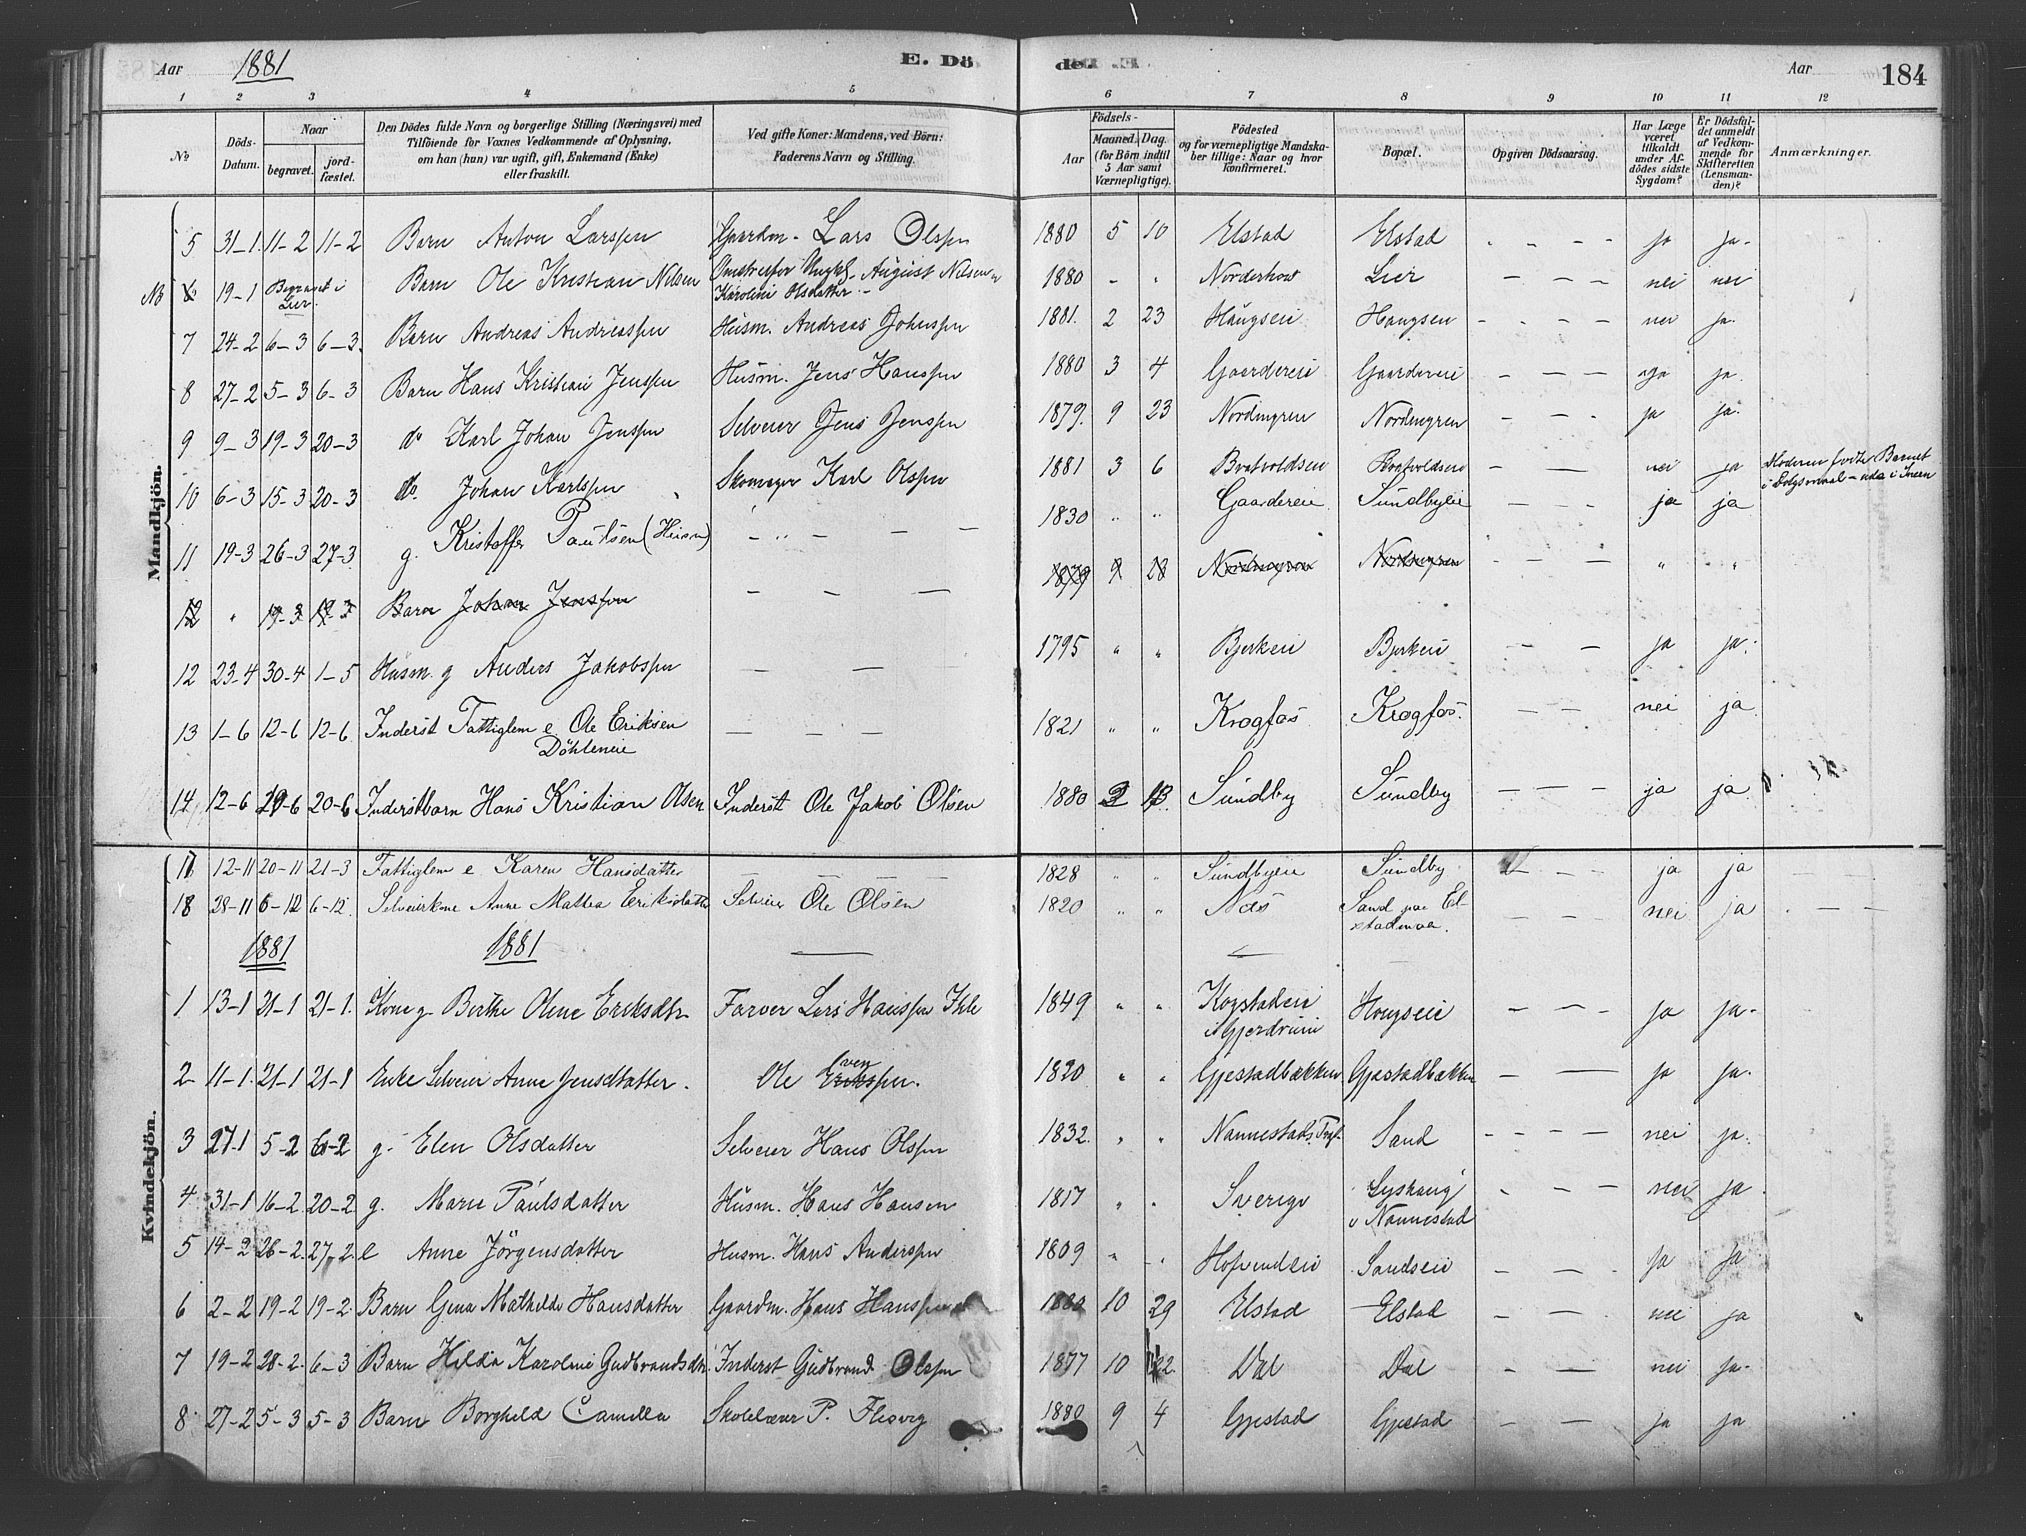 Aar 1881 E. Dö de. Aar 184
1 2 3 4 5 6 7 8 9 10 11 12
No
Döds-Datum.
Naar
begravet.
jord-fæstet.
Den Dödes fulde Navn og borgerlige Stilling (Næringsvei) med
Tilföiende for Voxnes Vedkommende af Oplysning,
om han (hun) var ugift, gift, Enkemand (Enke)
eller fraskilt.
Ved gifte Koner: Mandens, ved Börn:
Faderens Navn og Stilling.
Födsels-
Aar
Maaned. Dag.
(for Börn indtil
5 Aar samt
Værnepligtige).
Födested
og for værnepligtige Mandska-
ber tillige: Naar og hvor
konfirmeret.
Bopæl.
Opgiven Dödsaarsag.
Har Læge
været
tilkaldt
under Af-
dödes sidste
Sygdom?
Er Dödsfal-
det anmeldt
af Vedkom-
mende for
Skifteretten
(Lensman-
den)?
Anmærkninger.
Mandkjön.
5 31-1 11-2 11-2 Barn Anton Larssen Gaardm. Lars Olssen 1880 5 10 Elstad Elstad - - - - ja ja.
6 19-1 Begravet i Lier. Barn Ole Kristian Nilsen Ungkl. August Nilsen Karoline Olsdatter 1880 - " Norderhov Lier - - - nei nei
7 24-2 6-3 6-3. Barn Andreas Andreassen Husm. Andreas Johnssen 1881. 2 23 Haugseie Haugseie - - - - nei ja.
8 27-2 5-3 6-3 Barn Hans Kristian Jenssen Husm. Jens Hanssen 1880 3 4 Gaardereie Gaardereie - - - ja ja.
9 9-3 19-3 20-3 do Karl Johan Jenssen Selveier Jens Jenssen 1879. 9 23 Nordmyren Nordmyren - - - ja ja.
10 6-3 15-3 20-3 do Johan Karlssen Skomager Karl Olssen 1881 3 6 Bratvoldseie Bratvoldseie - - nei ja Moderen Barnet
i
11 19-3 26-3 27-3 g. Kristoffer Paulsen (Husm) - " - - - 1830 " " Gaardereie Sundbyeie - - - ja ja
12 " 19-3 19-3 Barn Johan Jenssen - - - 1879 9 28 Nordmyren Nordmyren - - - " "
12 23-4 30-4 1-5 Husm. g Anders Jakobssen - - 1795 " " Bjerkeie Bjerkeie - - ja ja.
13 1-6 12-6 12-6 Inderst Fattiglem e Ole Eriksen - - - 1821 " " Krogfos Krogfos. - - nei ja
Döhleneie
14 12-6 20-6 Inderstbarn Hans Kristian Olsen Inderst Ole Jakob Olsen 1880 13 Sundby Sundby - - - ja ja
Kvindekjön.
17 12-11 20-11 21-3 Fattiglem e Karen Hansdatter - - - 1828 " " Sundbyeie Sundby - - ja ja
18 28-11 6-12 6-12. Selveierkone Anne Mathea Eriksdatter Selveier Ole Olsen 1820 " " Næs Sand paa El-
stadmoen. - - nei ja - - -
1881 1881 — — —
1 13-1 21-1 21-1. Kone g Berthe Olene Eriksdtr Farver Lars Hanssen Ihle 1849 " " Kogstadeie
i Gjerdrum Haugseie - - - ja ja.
2 11-1. 21-1 21-1 Enke Selveier Anne Jensdtatter. Ole Evenssen. 1820 " " Gjestadbækken Gjestadbækken - - ja ja.
3 27-1 5-2 6-2 g. Elen Olsdatter Selveier Hans Olssen 1832. " " Nannestads Sand - - - - nei ja.
4 31-1 16-2. 20-2 g. Marie Paulsdatter Husm. Hans Hansen 1817 " " Sverige Lyshaug
v Nannestad - - - nei ja.
5 14-2 26-2. 27-2. e Anne Jörgensdatter Husm. Hans Anderssen 1809 " " Hofvendeie Sandseie - - - ja ja
6 2-2 19-2 19-2. Barn Gina Mathilde Hansdatter Gaardm. Hans Hanssen 1880 10 29 Elstad Elstad - - - nei ja
7 19-2 28-2. 6-3 Barn Hilda Karoline Gudbrandsdtr. Inderst Gudbrand Olssen 1877 10 22. Dal Dal - - nei ja.
8 27-2 5-3 5-3 Barn Borghild Camilla Skolelærer P. 1880 9 4 Gjestad Gjestad - - ja ja